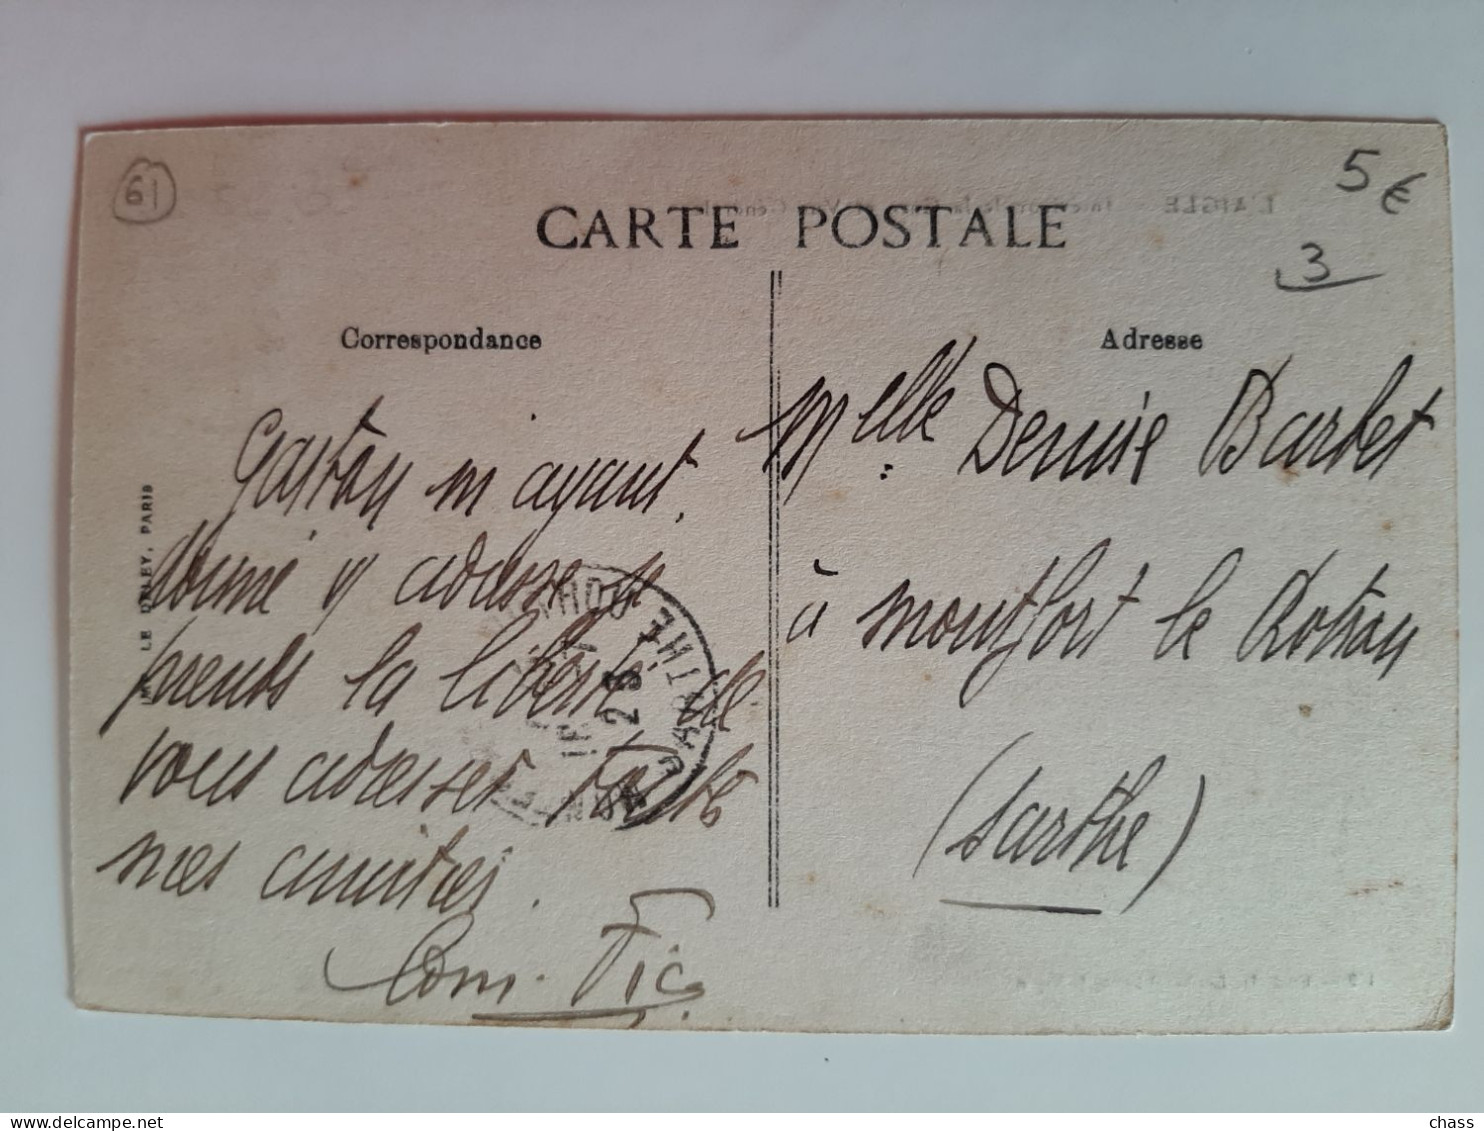 61
5 €
3
CARTE POSTALE
Correspondance
Adresse
LE DELEY, PARIS
Gaston m'ayant
donné v/ adresse je
prends la liberté de
vous adresser toutes
mes amitiés.
Melle Denise Barbet
à Montfort le Rotrou
(Sarthe)
chass